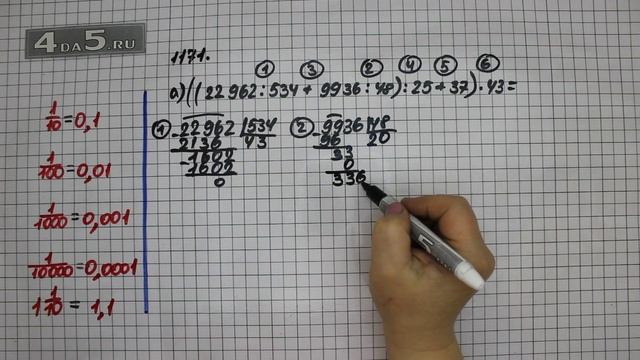 4DA5.RU
1171.
① ③ ② ④ ⑤ ⑥
а) ((22962:534+9936:48):25+37)·43=
① 22962 | 534
2136 | 43
1602
1602
0
② 9936 | 48
96 | 20
33
0
336
1/10 = 0,1
1/100 = 0,01
1/1000 = 0,001
1/10000 = 0,0001
1 1/10 = 1,1